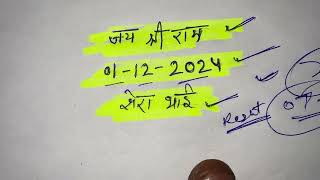 जय श्री राम
01-12-2024
शेरा भाई
Result